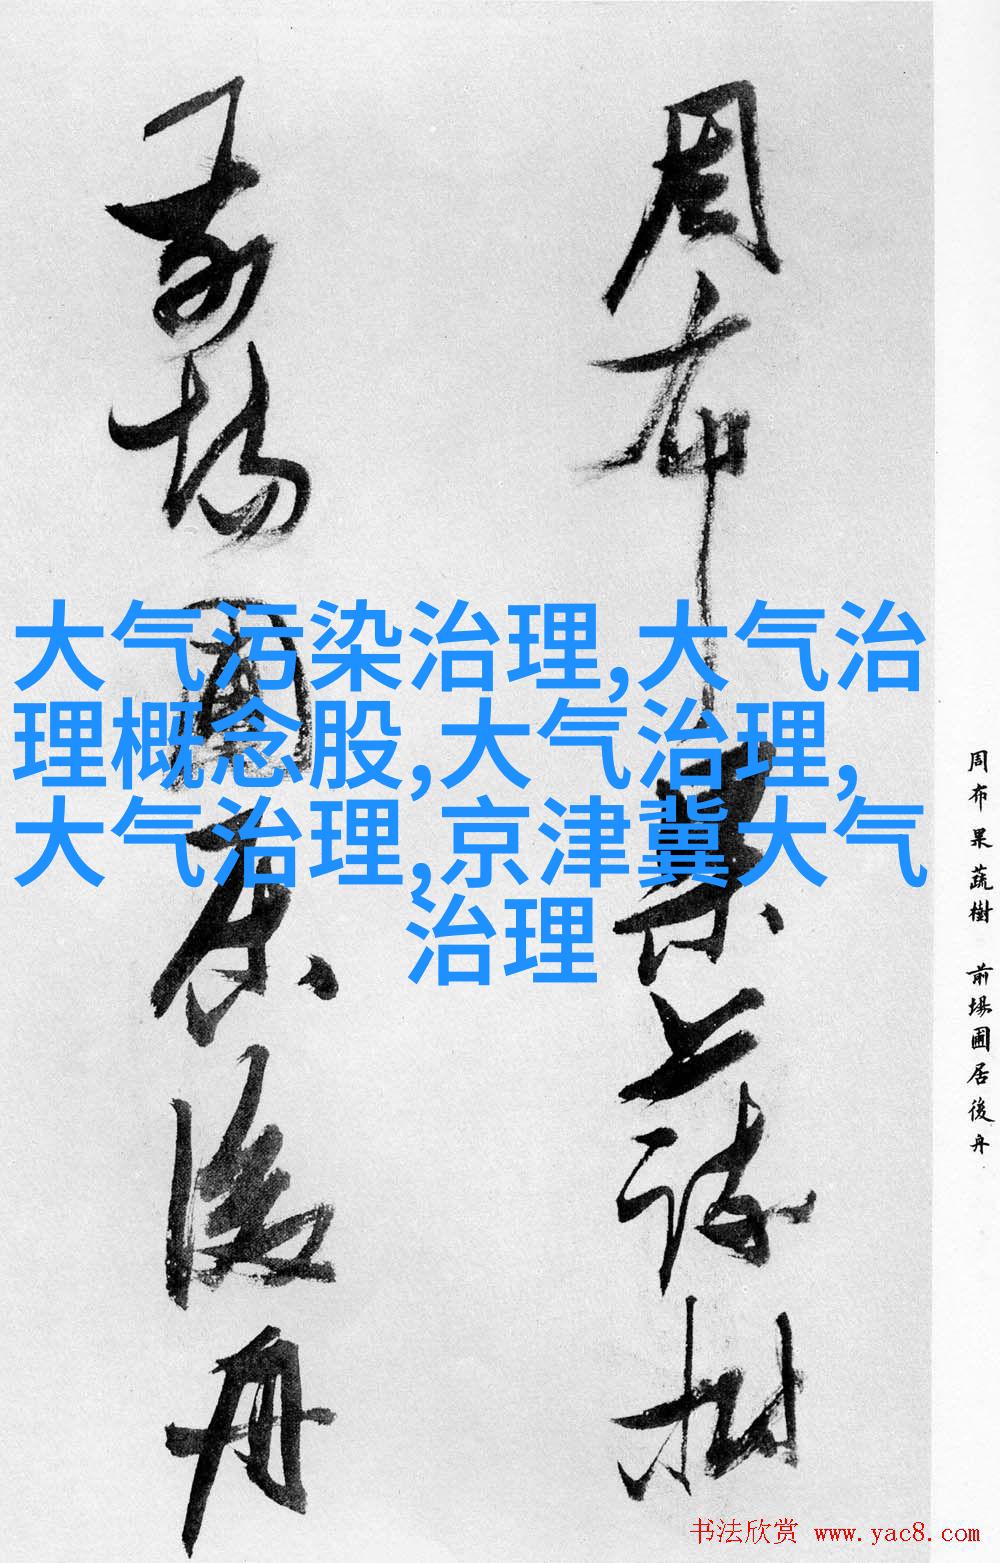 周布果蔬樹
前場圃居後舟
大气污染治理,大气治
理概念股,大气治理,
大气治理,京津冀大气
治理
周布果蔬樹 前場圃居後舟
书法欣赏 www.yac8.com